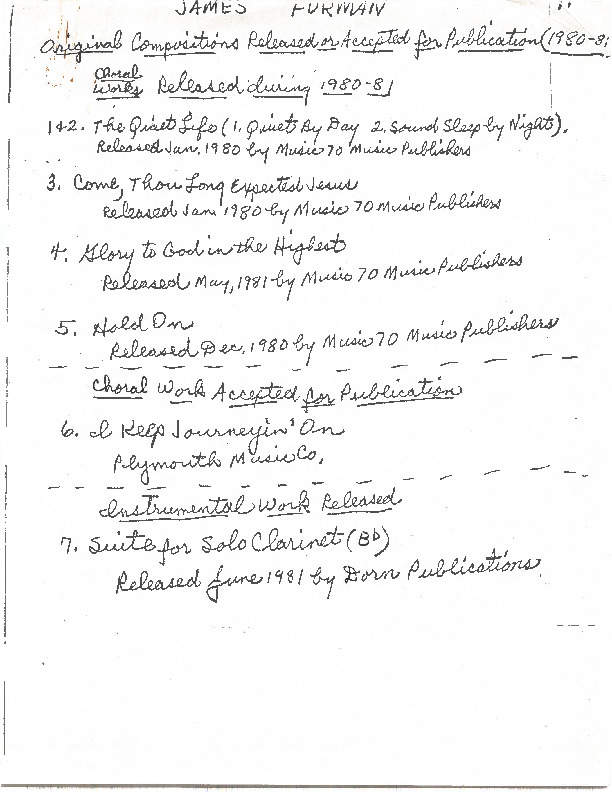 JAMES FURMAN
Original Compositions Released or Accepted for Publication (1980-81
Choral Works Released during 1980-81
1&2. The Quiet Life (1. Quiet By Day 2. Sound Sleep by Night).
Released Jan, 1980 by Music 70 Music Publishers
3. Come, Thou Long Expected Jesus
Released Jan 1980 by Music 70 Music Publishers
4. Glory to God in the Highest
Released May, 1981 by Music 70 Music Publishers
5. Hold On
Released Dec, 1980 by Music 70 Music Publishers
Choral Work Accepted for Publication
6. I Keep Journeyin' On
Plymouth Music Co.
Instrumental Work Released
7. Suite for Solo Clarinet (Bb)
Released June 1981 by Dorn Publications.